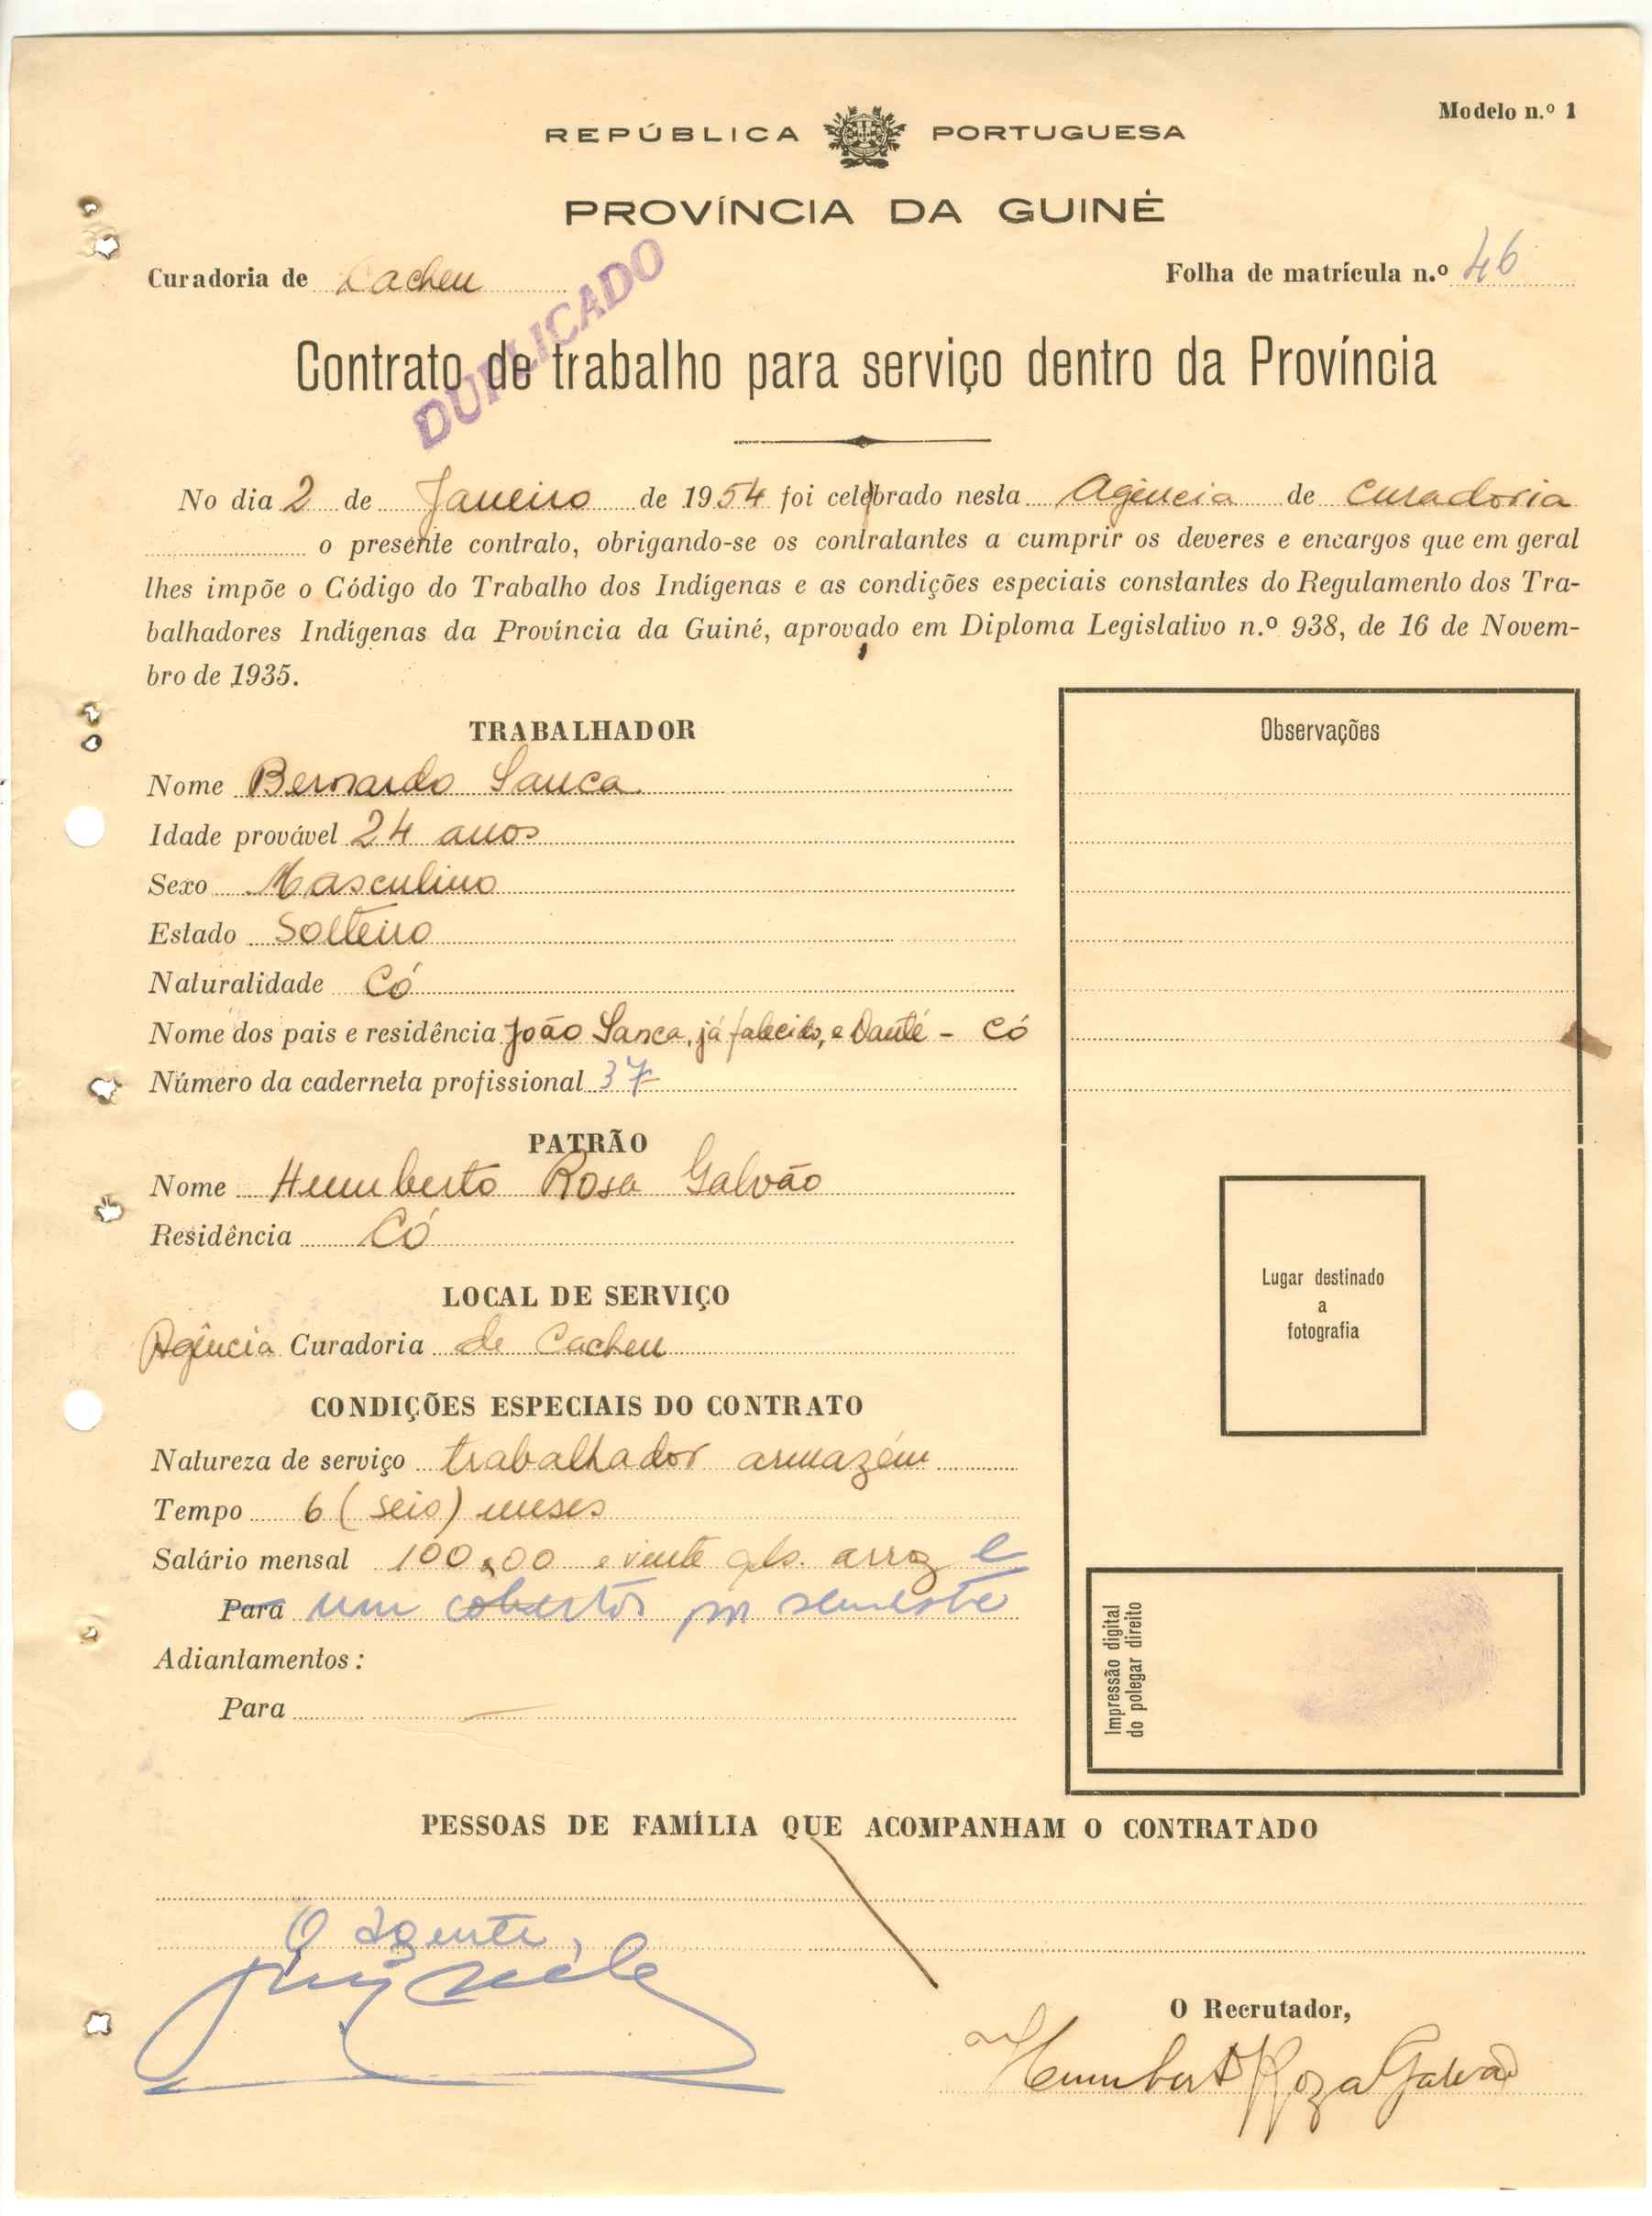 Modelo n.º 1
REPÚBLICA PORTUGUESA
PROVÍNCIA DA GUINÉ
Curadoria de Cacheu
Folha de matrícula n.º 46
DUPLICADO
Contrato de trabalho para serviço dentro da Província
No dia 2 de Janeiro de 1954 foi celebrado nesta Agência de Curadoria
o presente contrato, obrigando-se os contratantes a cumprir os deveres e encargos que em geral
lhes impõe o Código do Trabalho dos Indígenas e as condições especiais constantes do Regulamento dos Tra-
balhadores Indígenas da Província da Guiné, aprovado em Diploma Legislativo n.º 938, de 16 de Novem-
bro de 1935.
TRABALHADOR
Nome Bernardo Sanca
Idade provável 24 anos
Sexo Masculino
Estado Solteiro
Naturalidade Có
Nome dos pais e residência João Sanca, já falecido, e Danté - Có
Número da caderneta profissional 37
PATRÃO
Nome Humberto Rosa Galvão
Residência Có
LOCAL DE SERVIÇO
Agência Curadoria de Cacheu
CONDIÇÕES ESPECIAIS DO CONTRATO
Natureza de serviço trabalhador armazém
Tempo 6 (seis) meses
Salário mensal 100,00 e vinte arroz e
Para um cobertor por semestre
Adiantamentos:
Para
Observações
Lugar destinado
a
fotografia
Impressão digital
do polegar direito
PESSOAS DE FAMÍLIA QUE ACOMPANHAM O CONTRATADO
O Agente,
O Recrutador,
Humberto Roza Galvão